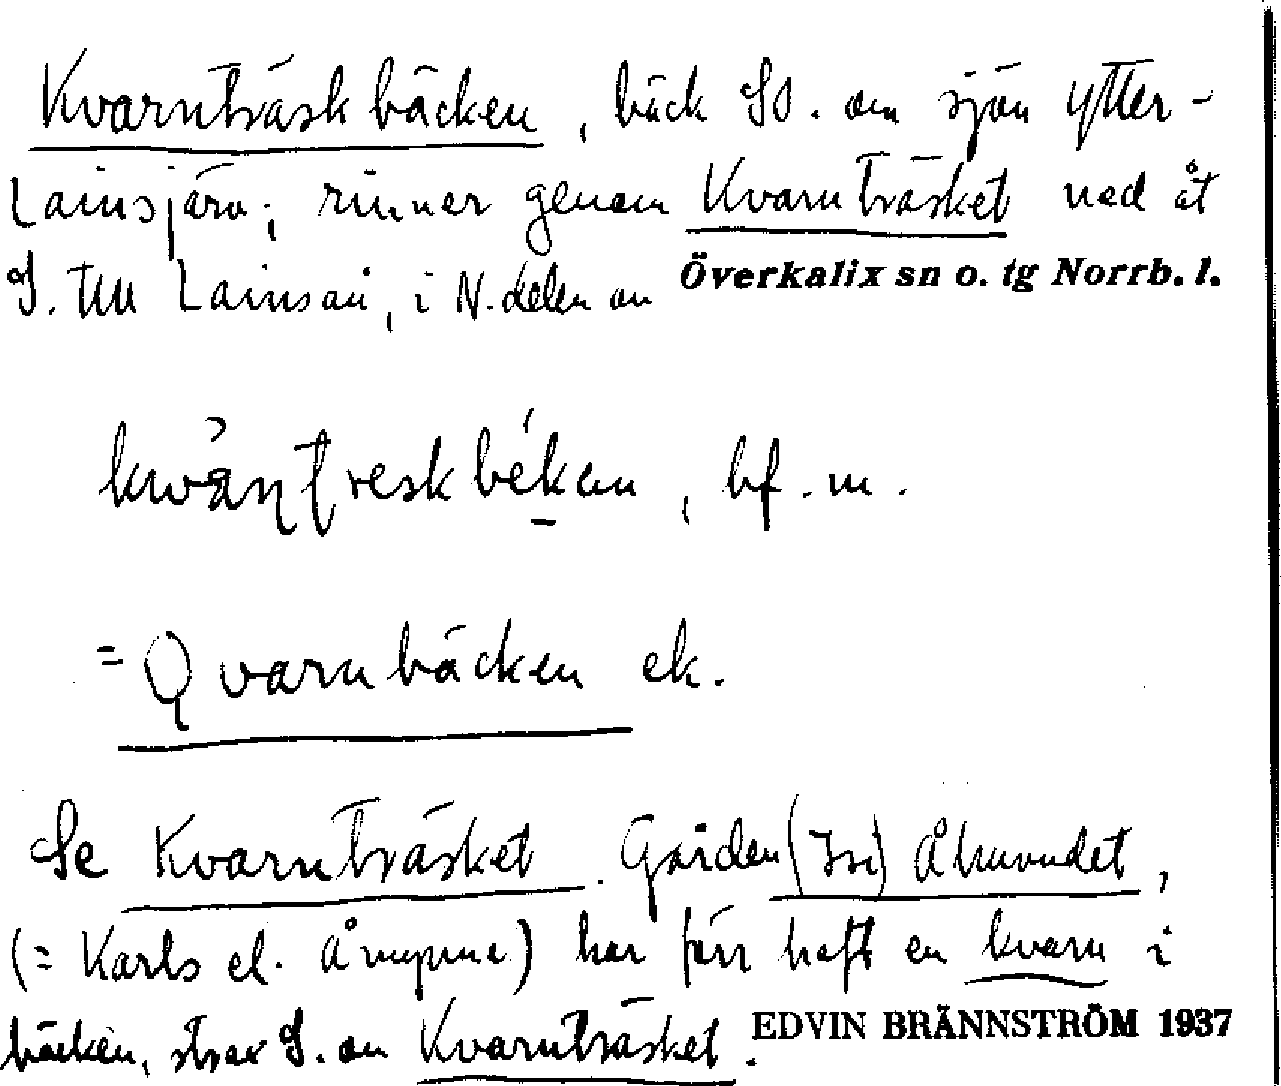 Kvarnträskbäcken, bäck SO. om sjön Ytter-
Lainsjärv; rinner genom Kvarnträsket ned åt
S. till Lainsån, i N. delen av Överkalix sn o. tg Norrb. l.
bf. m.
= Qvarnbäcken ek.
Se Kvarnträsket. Gården (Ise) Åhuvudet,
(= Karls el. Åmynne) har förr haft en kvarn i
bäcken, strax S. om Kvarnträsket.
EDVIN BRÄNNSTRÖM 1937